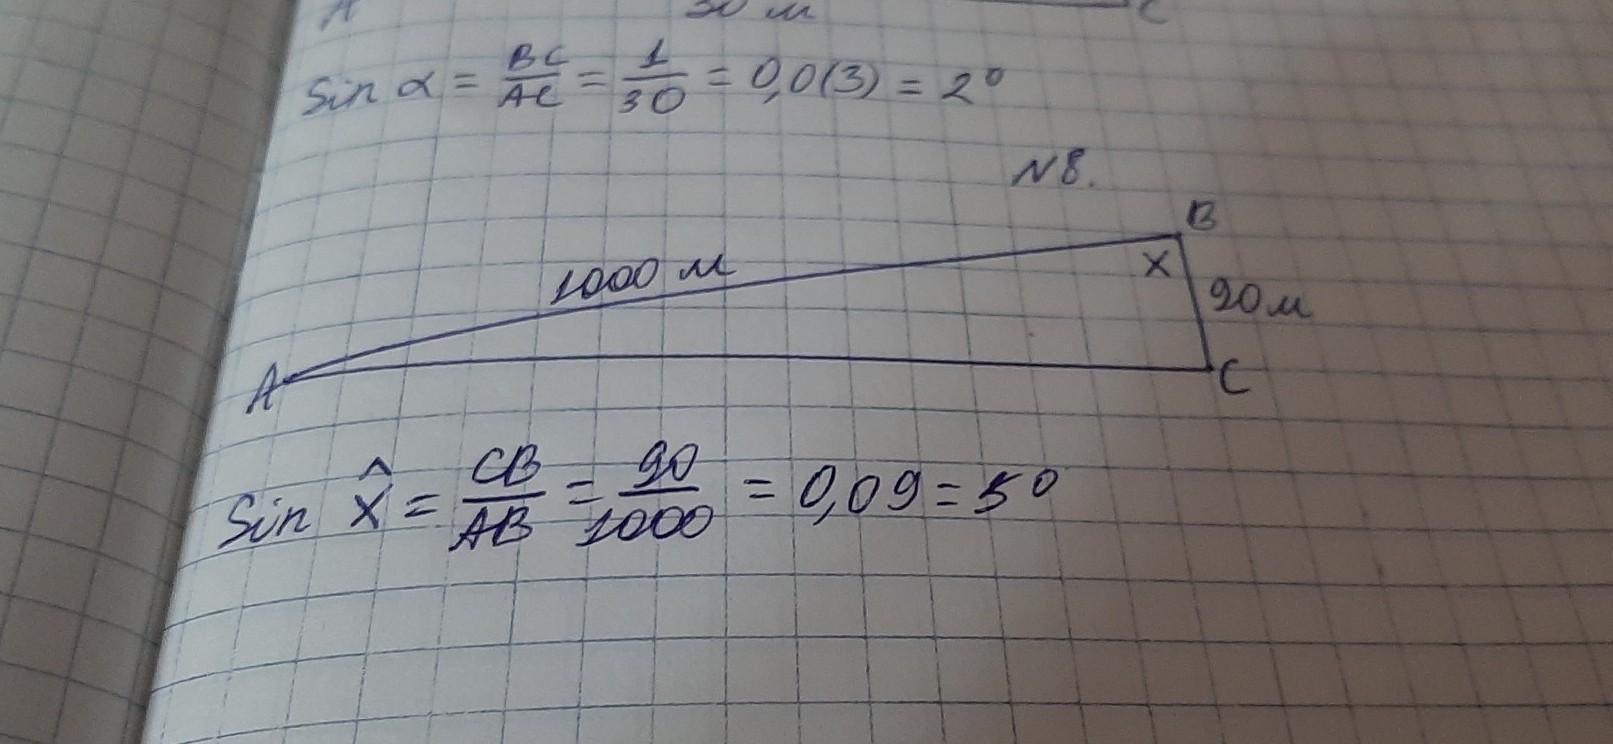 A 30 м C
Sin α = BC/AC = 1/30 = 0,0(3) = 2°
N8.
B
1000 м
X
90 м
A
C
Sin X̂ = CB/AB = 90/1000 = 0,09 = 5°